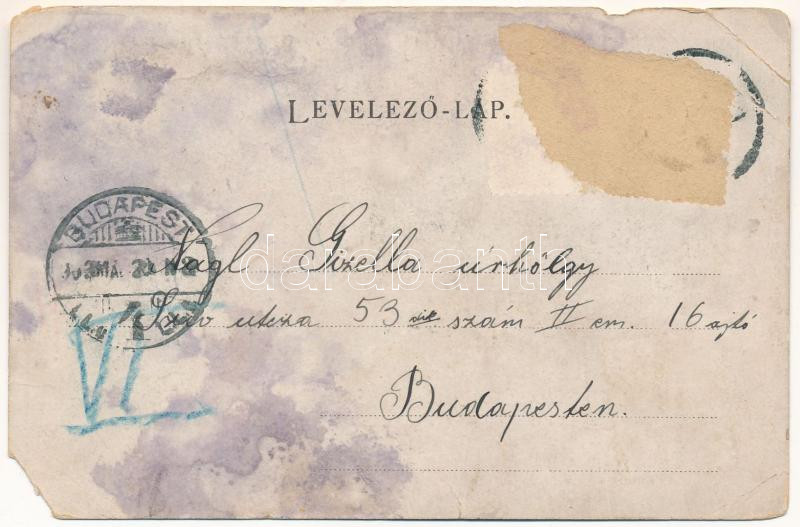 LEVELEZŐ-LAP.
BUDAPEST
Nagl Gizella úrhölgy
Szív utcza 53 szám II em. 16 ajtó
Budapesten.
VI
darabanth